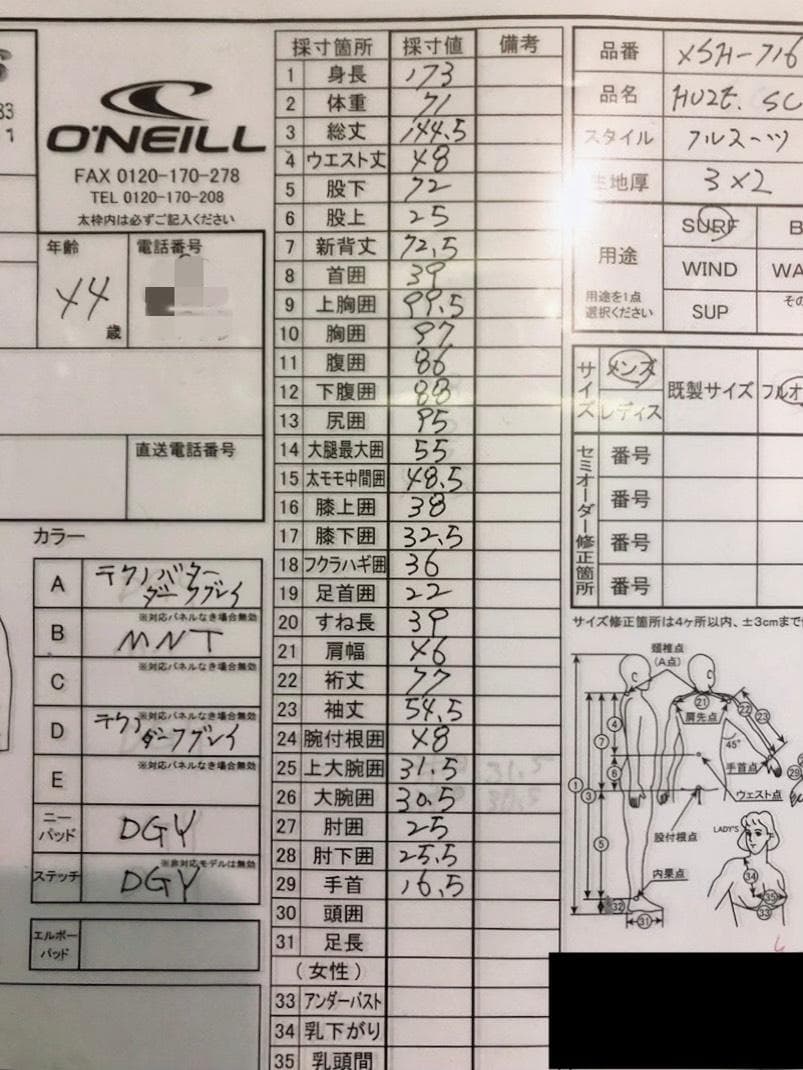 O'NEILL
FAX 0120-170-278
TEL 0120-170-208
太枠内は必ずご記入ください
年齢 電話番号
44
歳
直送電話番号
カラー
A テクノバター
ダークグレイ
※対応パネルなき場合無効
B MNT
※対応パネルなき場合無効
C
※対応パネルなき場合無効
D テクノ
ダークグレイ
※対応パネルなき場合無効
E
ニーパッド DGY
※非対応モデルは無効
ステッチ DGY
エルボーパッド
採寸箇所 採寸値 備考
1 身長 173
2 体重 71
3 総丈 144.5
4 ウエスト丈 48
5 股下 72
6 股上 25
7 新背丈 72.5
8 首囲 39
9 上胸囲 99.5
10 胸囲 97
11 腹囲 86
12 下腹囲 88
13 尻囲 95
14 大腿最大囲 55
15 太モモ中間囲 48.5
16 膝上囲 38
17 膝下囲 32.5
18 フクラハギ囲 36
19 足首囲 22
20 すね長 39
21 肩幅 46
22 裄丈 77
23 袖丈 54.5
24 腕付根囲 48
25 上大腕囲 31.5
26 大腕囲 30.5
27 肘囲 25
28 肘下囲 25.5
29 手首 16.5
30 頭囲
31 足長
(女性)
33 アンダーバスト
34 乳下がり
35 乳頭間
品番 XSH-716
品名 HUZE. SC
スタイル フルスーツ
生地厚 3×2
用途
用途を1点
選択ください
SURF B
WIND WA
SUP その
サイズ
メンズ
レディス
既製サイズ フルオ
セミオーダー修正箇所
番号
番号
番号
番号
サイズ修正箇所は4ヶ所以内、±3cmまで
頚椎点
(A点)
肩先点
45°
手首点
ウェスト点
股付根点
内果点
LADY'S
① ③ ④ ⑤ ⑥ ⑦ ㉑ ㉒ ㉓ ㉙ ㉛ ㉜ ㉝ ㉞ ㉟